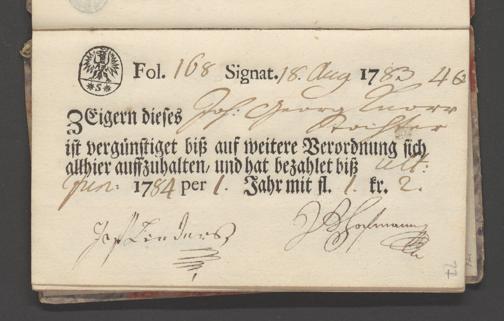 *S*
Fol. 168 Signat. 18. Aug 1783 46
Zeigern dieses Joh: Georg Knorr
Tochter
ist vergünstiget biß auf weitere Verordnung sich
allhier auffzuhalten, und hat bezahlet biß ult:
Jun: 1784 per 1. Jahr mit fl. 1. kr. 2.